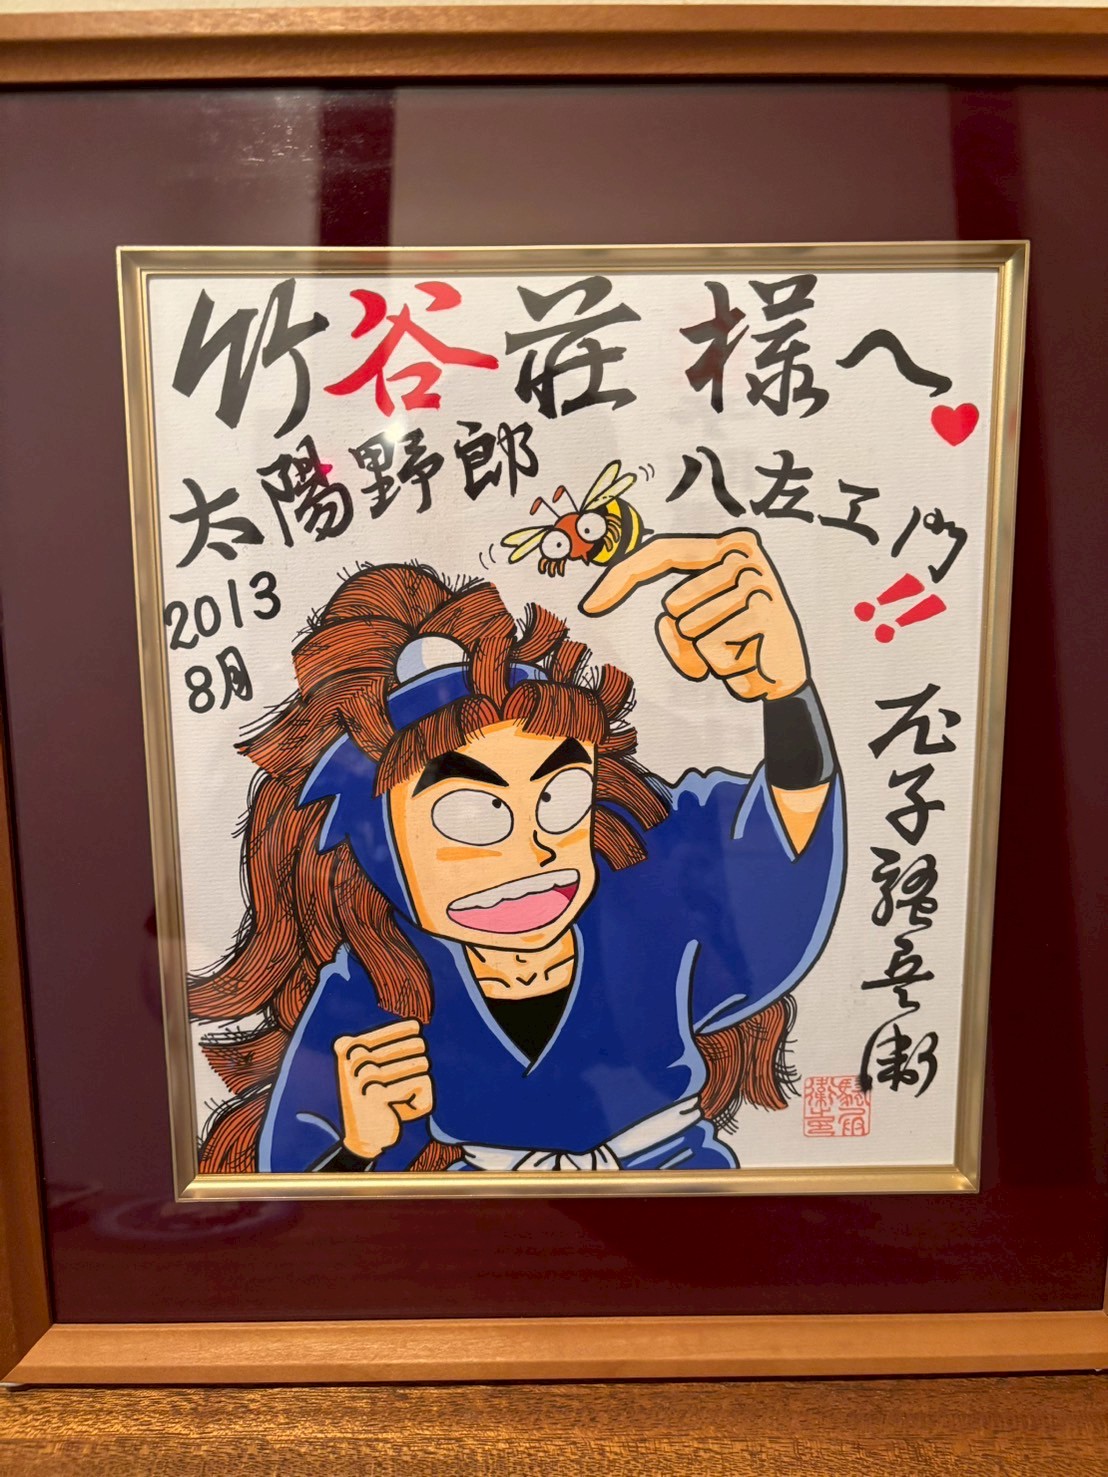 竹谷荘 様へ
太陽野郎
八左エ門!!
2013
8月
尼子騒兵衛